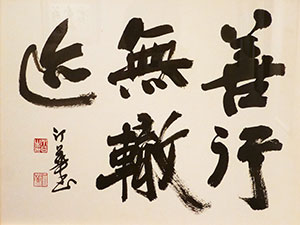 善行
無轍
迹
汀華书